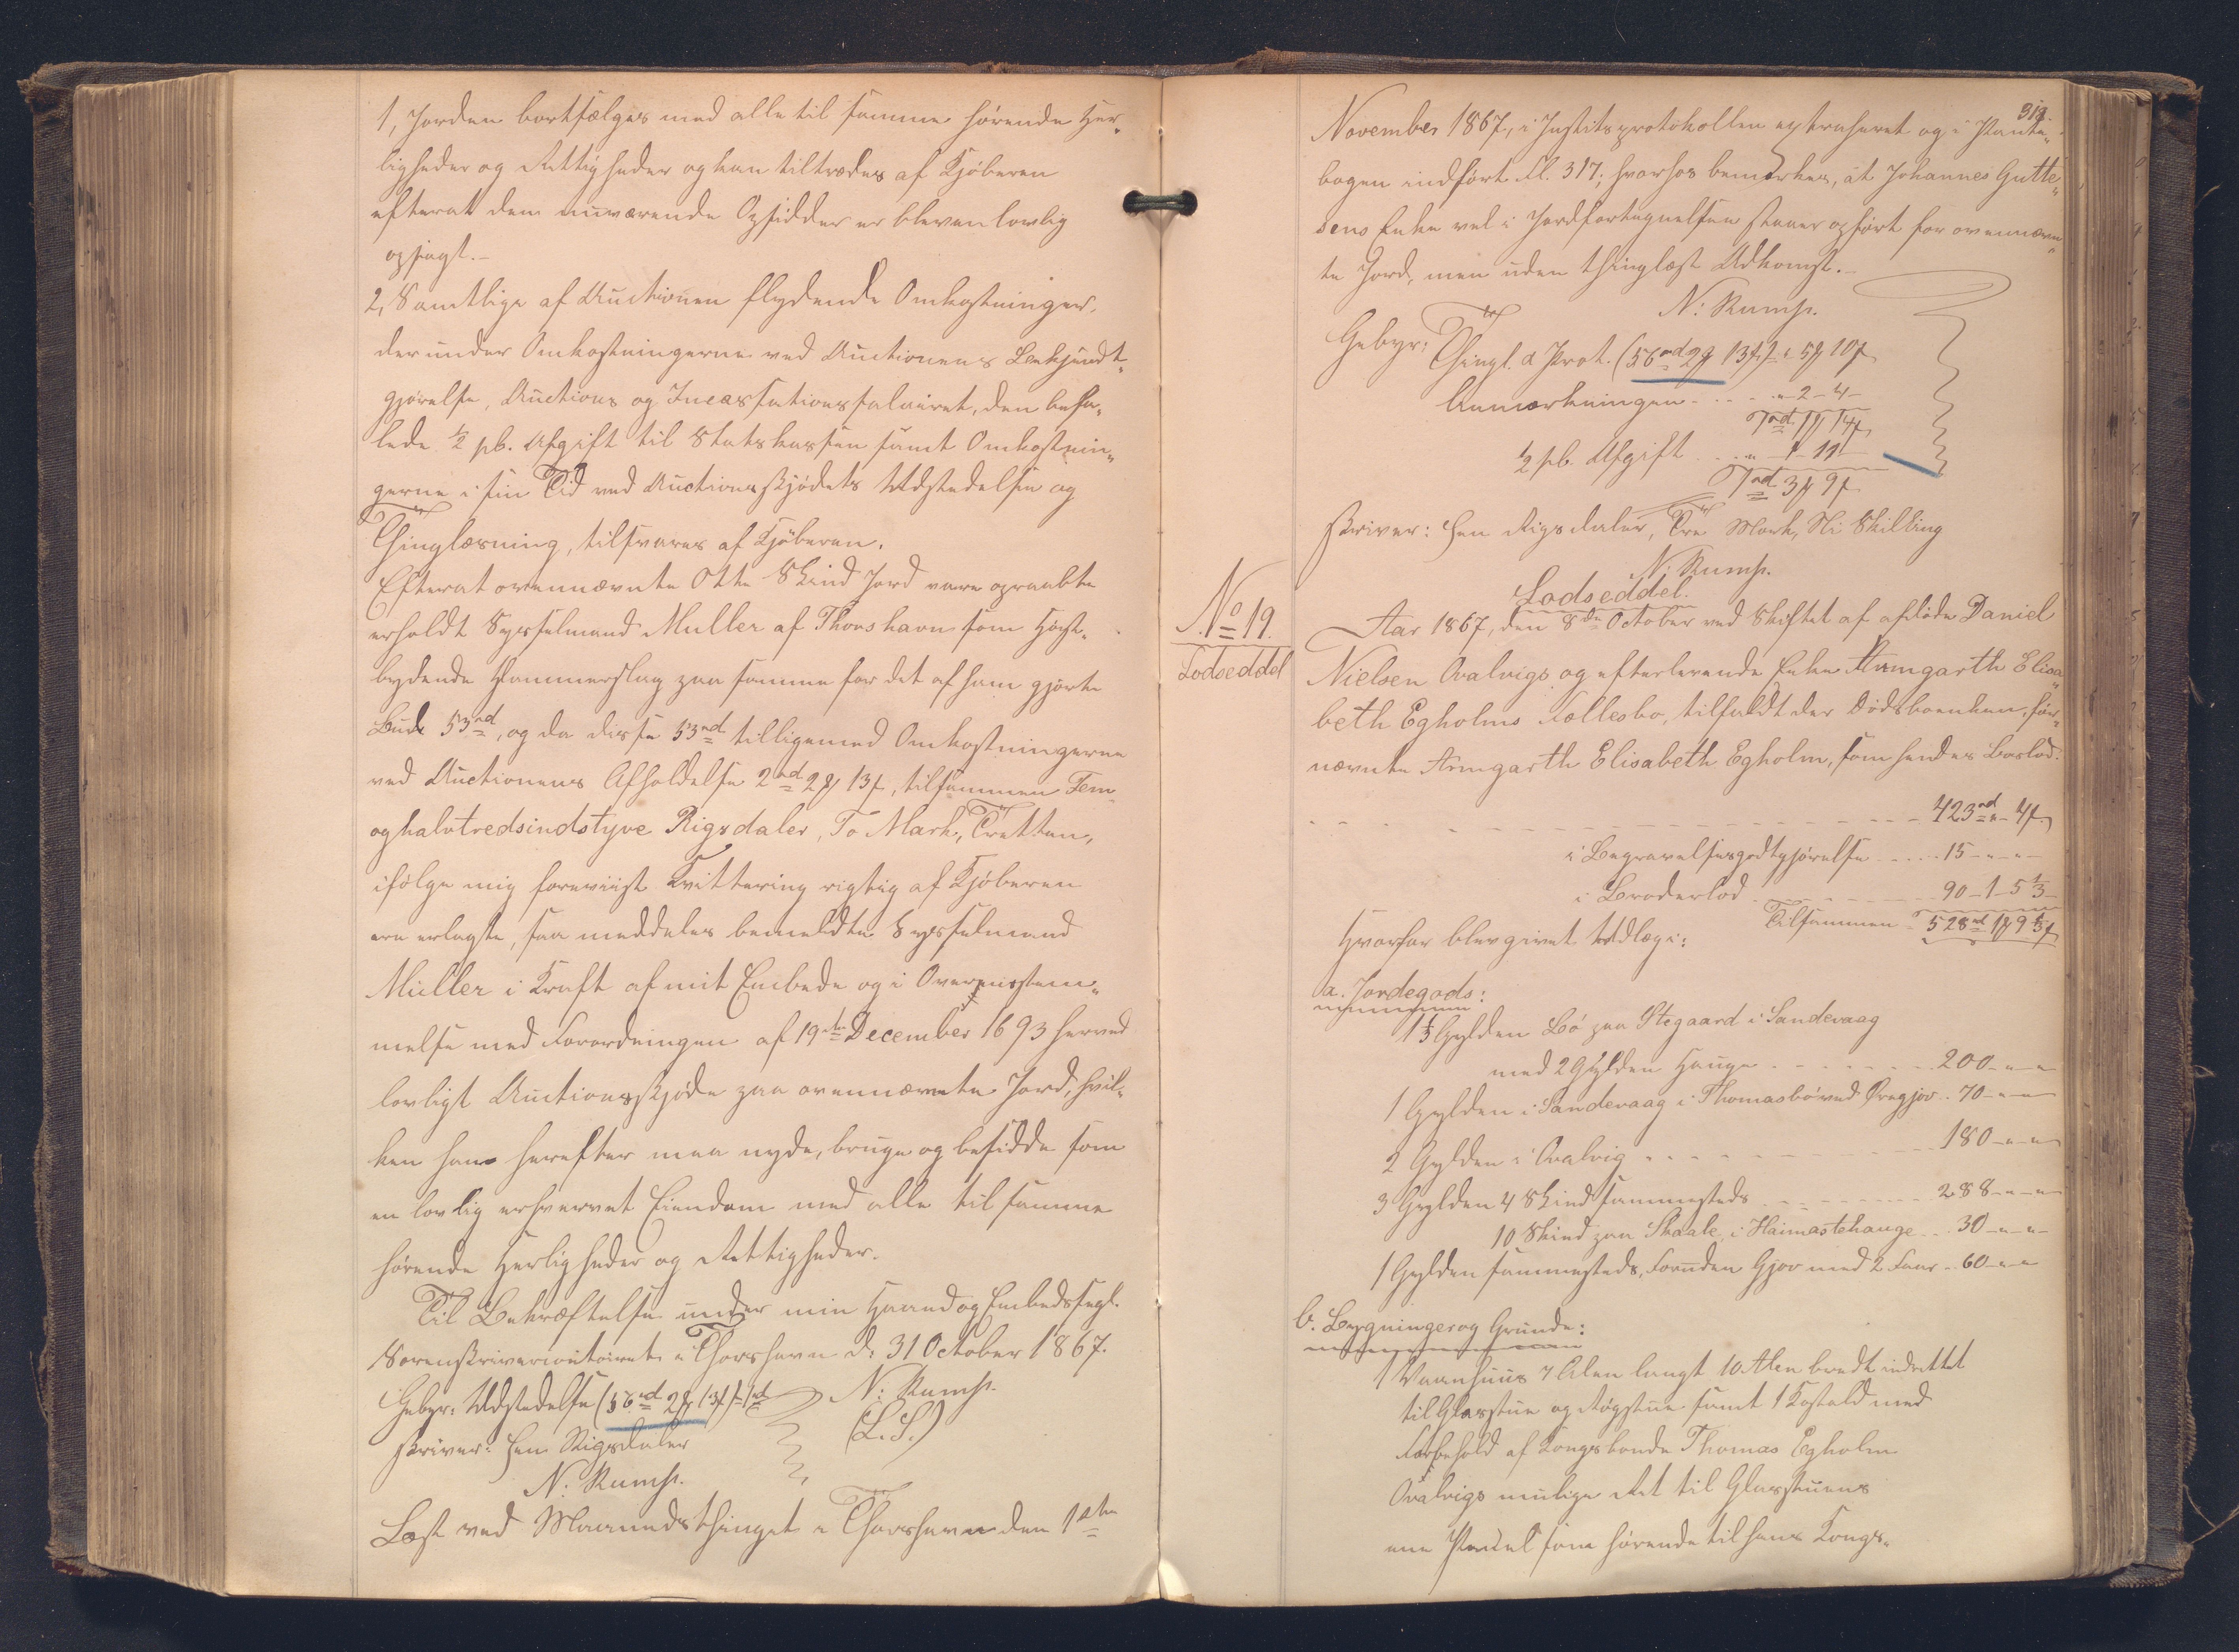 1, Jorden bortsælges med alle til samme hørende Her-
ligheder og Rettigheder og kan tiltrædes af Kjøberen
efterat den nuværende Opsidder er bleven lovlig
opsagt.-
2, Samtlige af Auctionen flydende Omkostninger,
derunder Omkostningerne ved Auctionens Bekjendt-
gjørelse, Auctions og Incassationssalairet, den befa-
lede ½ pC. Afgift til Statskassen samt Omkostnin-
gerne i sin Tid ved Auctionsskjødets Udstedelse og
Thinglæsning, tilsvares af Kjøberen.
Efterat ovennævnte Otte Skind Jord vare opraabte
erholdt Sysselmand Müller af Thorshavn som Høist-
bydende Hammerslag paa samme for det af ham gjorte
Bud 53 rd, og da disse 53 rd tilligemed Omkostningerne
ved Auctionens Afholdelse 2 rd 2 ℳ 13 ß, tilsammen Fem
og halvtredsindstyve Rigsdaler, To Mark, Tretten,
ifølge mig foreviist Kvittering rigtig af Kjøberen
ere erlagte, saa meddeles bemeldte Sysselmand
Müller i Kraft af mit Embede og i Overensstem-
melse med Forordningen af 19de December 1693 herved
lovligt Auctionsskjøde paa ovennævnte Jord, hvil-
ken han herefter maa nyde, bruge og besidde som
en lovlig erhvervet Eiendom med alle til samme
hørende Herligheder og Rettigheder.
Til Bekræftelse under min Haand og Embedssegl.
Sorenskrivercontoiret i Thorshavn d: 31 October 1867.
Gebyr: Udstedelse (56 rd 2 ℳ 13 ß) 1 rd N: Rump.
skriver: Een Rigsdaler (L.S.)
N: Rump.
Læst ved Maanedsthinget i Thorshavn den 1ste
313.
November 1867, i Justitsprotokollen extraheret og i Pante-
bogen indført fl. 317; hvorhos bemærkes, at Johannes Gutte-
sens Enke vel i Jordfortegnelsen staaer opført for ovennævn-
te Jord, men uden thinglæst Adkomst.-
N: Rump.
Gebyr: Thingl. & Prot. (56 rd 2 ℳ 13 ß) - " 5 ℳ 10 ß
Anmærkningen . . . . " - 2 - 4 -
1 rd 1 ℳ 14 ß
½ pC. Afgift . . . " - 1 - 11
1 rd 3 ℳ 9 ß
skriver: Een Rigsdaler, Tre Mark, Ni Skilling
N. Rump.
Lodseddel.
No 19.
Lodseddel
Aar 1867, den 8de October ved Skiftet af afdøde Daniel
Nielsen Qvalvigs og efterlevende Enke Armgarth Elisa-
beth Egholms Fællesbo, tilfaldt der Dødsboenken, før-
nævnte Armgarth Elisabeth Egholm, som hendes Boslod
. . . 423 rd " - 4 ß
i Begravelsesgodtgjørelse . . . . 15 - " - "
i Broderlod . . . 90 - 1 - 5 ⅓
Tilsammen . 528 rd 1 ℳ 9 ⅓ ß
Hvorfor blev givet Udlæg i:
a. Jordegods:
1 ⅓ Gylden Bø paa Stegaard i Sandevaag
med 2 Gylden Hauge . . . 200 - " - "
1 Gylden i Sandevaag i Thomasbø ved Øregjov . 70 - " - "
2 Gylden i Qvalvig . . . 180 - " - "
3 Gylden 4 Skind sammesteds . . . 288 - " - "
10 Skind paa Skaale, i Haimastehauge . . 30 - " - "
1 Gylden sammesteds, Foruden Gjov med 2 Faar . 60 - " - "
b. Bygninger og Grunde:
1 Vaanhuus 7 Alen langt 10 Alen bredt indrettet
til Glasstue og Røgstue samt 1 Kostald med
Forbehold af Kongsbonde Thomas Egholm
Qvalvigs mulige Ret til Glasstuens
ene som hørende til hans Kongs-